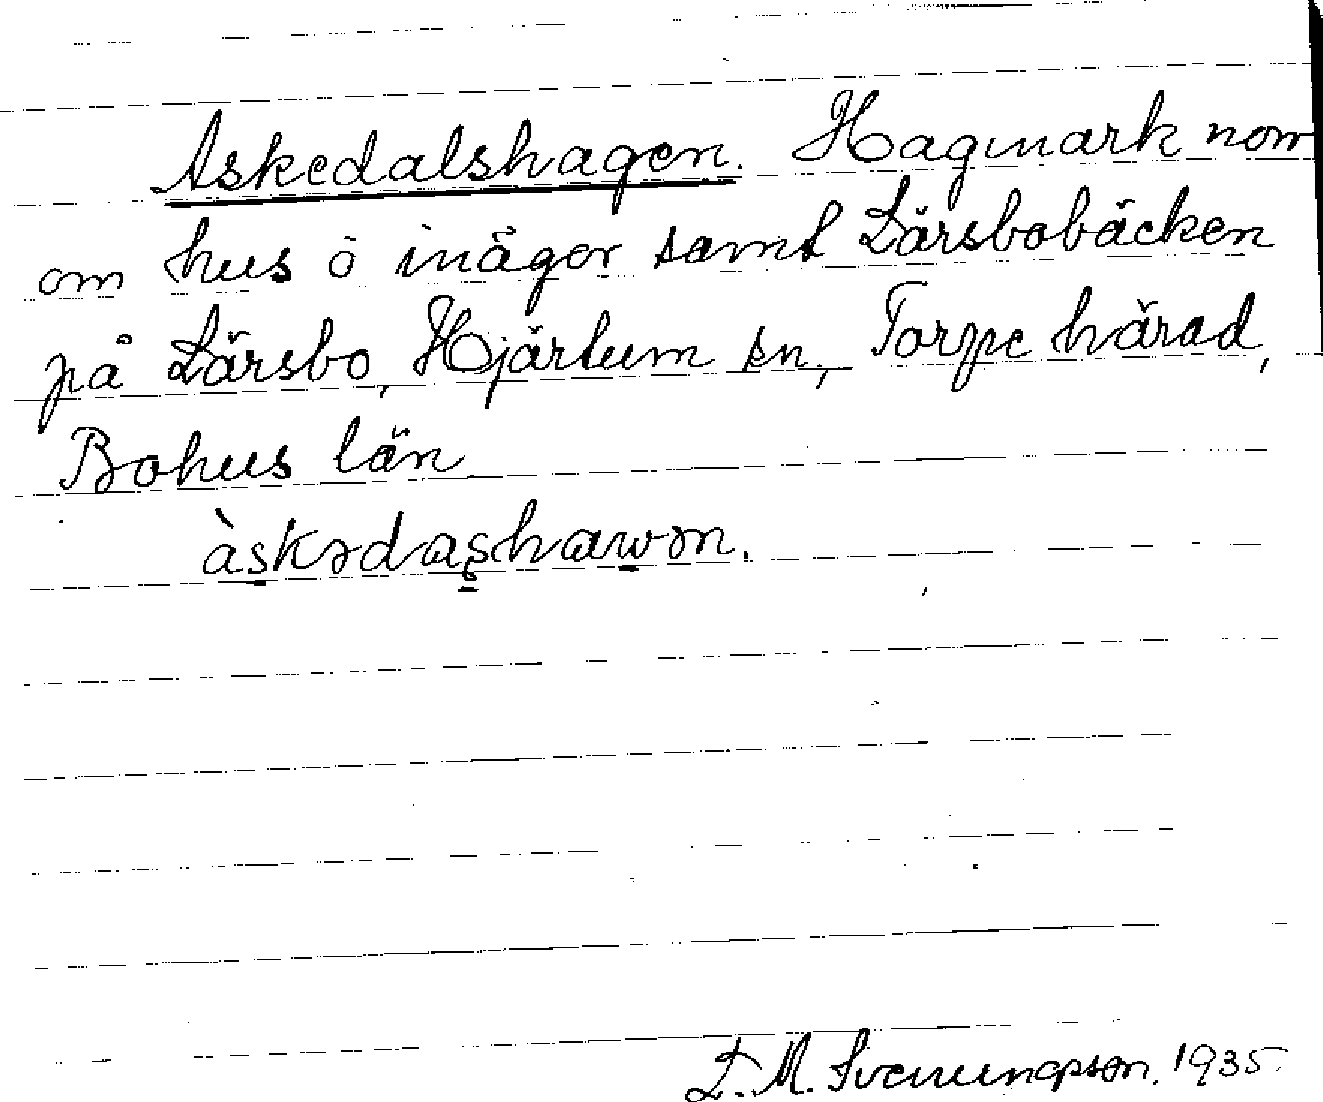 Askedalshagen. Hagmark norr
om hus o inägor samt Lärsbobäcken
på Lärsbo, Hjärtum sn, Torpe härad,
Bohus län
àskədashawən.
L. M. Svenungsson. 1935.